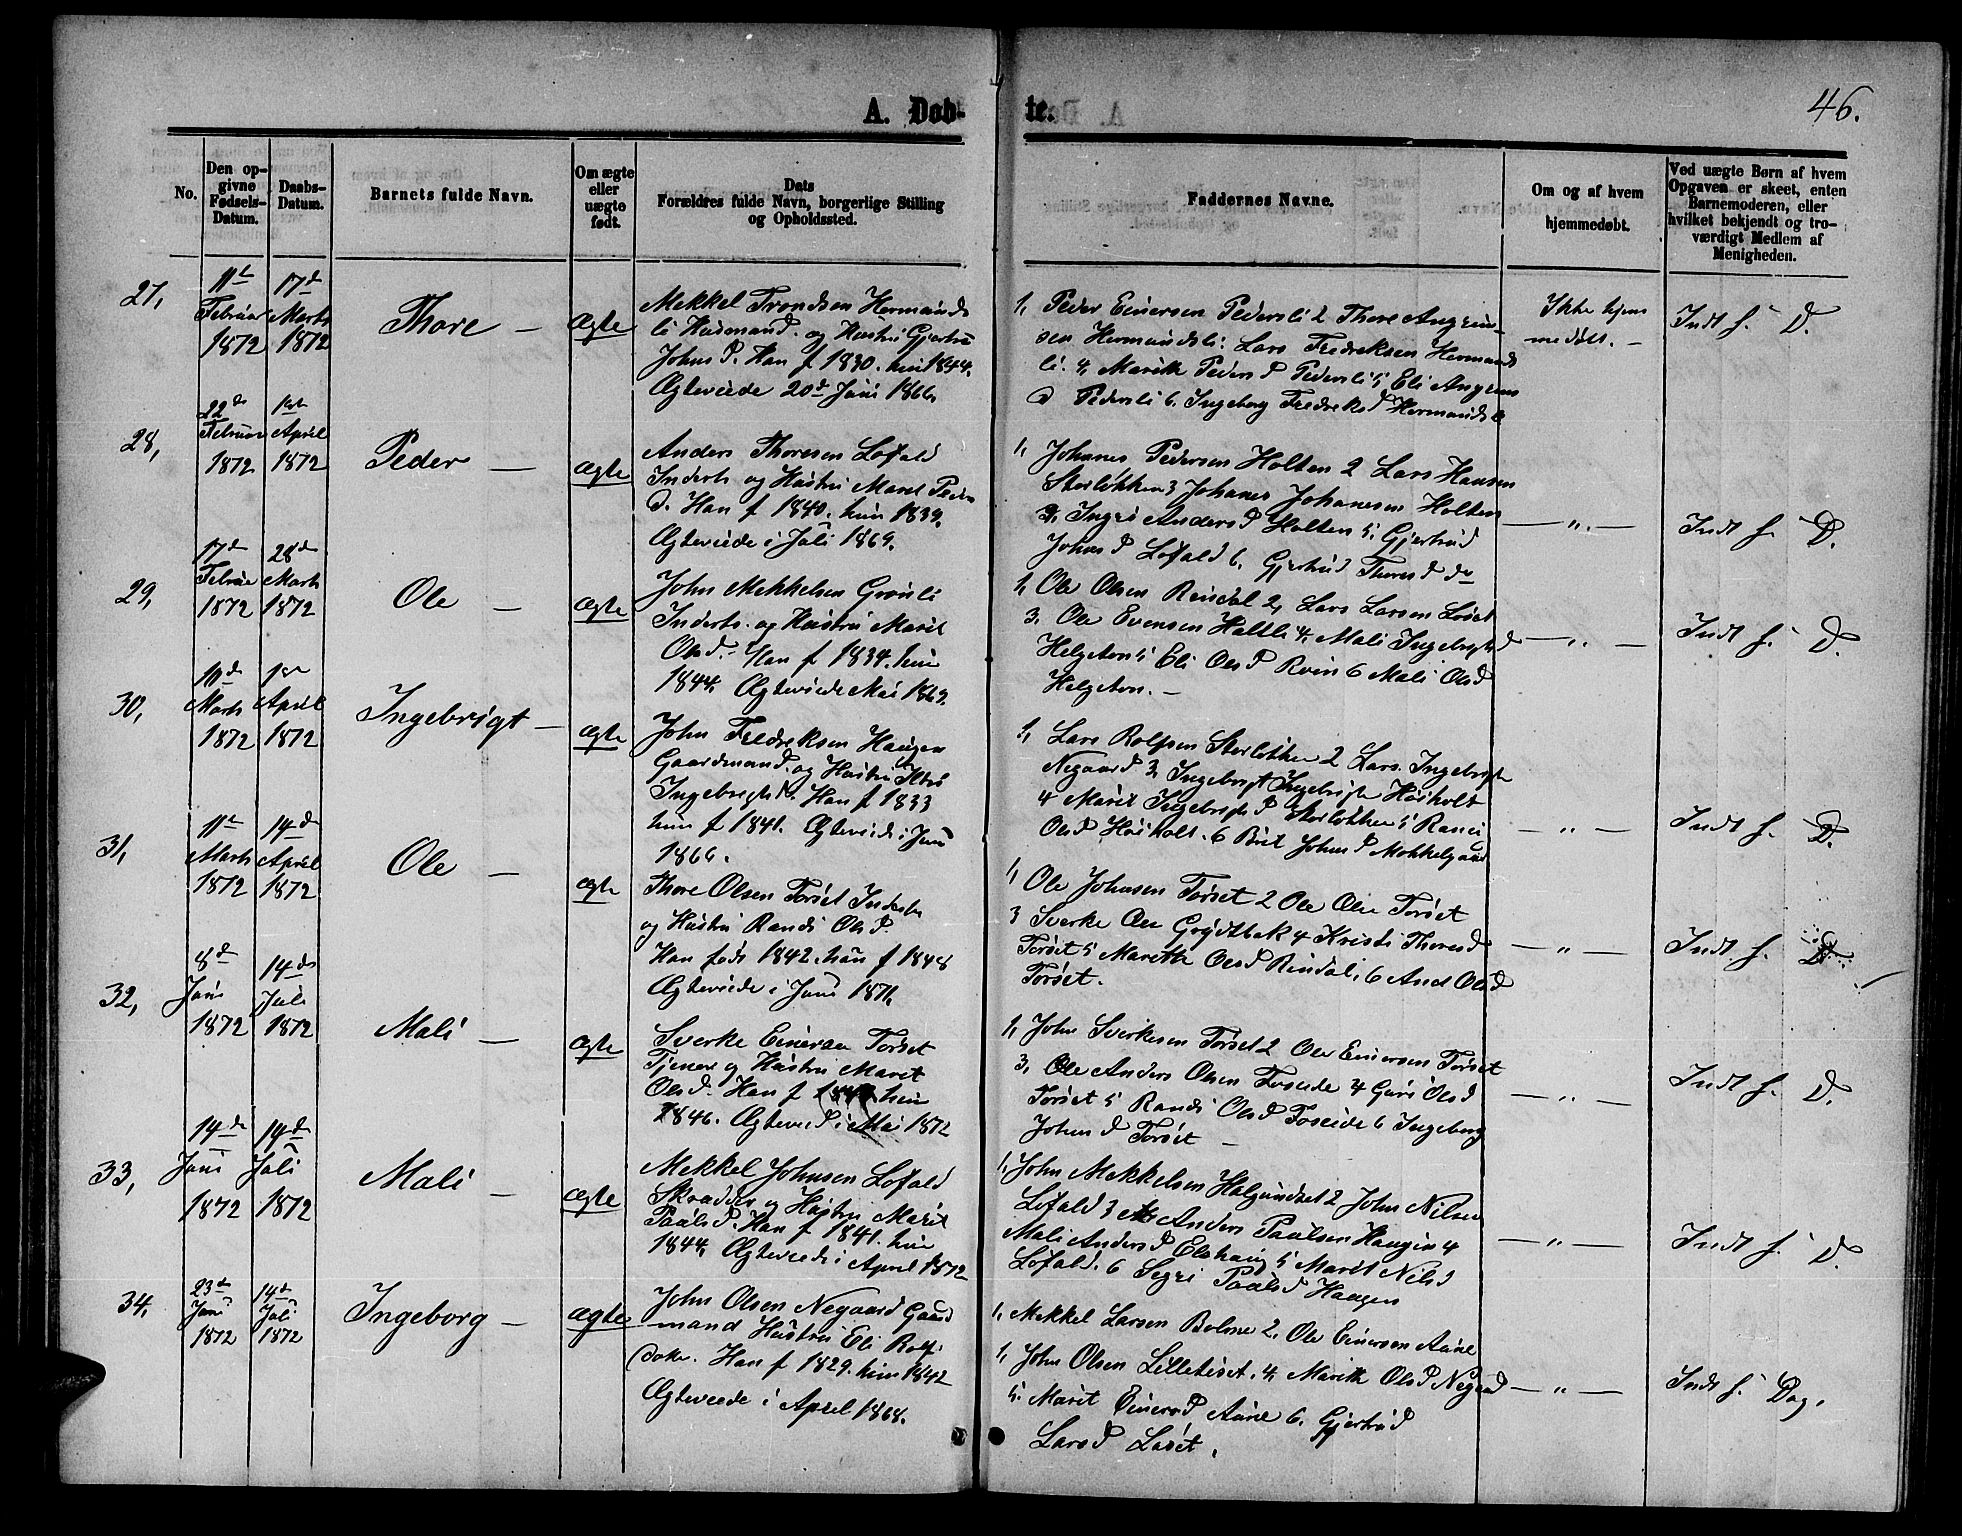 A. Døb-
te.
46.
No.
Den op-
givne
Fødsels-
Datum.
Daabs-
Datum.
Barnets fulde Navn.
Om ægte
eller
uægte
født.
Dats
Forældres fulde Navn, borgerlige Stilling
og Opholdssted.
Faddernes Navne.
Om og af hvem
hjemmedøbt.
Ved uægte Børn af hvem
Opgaven er skeet, enten
Barnemoderen, eller
hvilket bekjendt og tro-
værdigt Medlem af
Menigheden.
27,
11te
Februar
1872
17de
Marts
1872
Thore —
Ægte
Mekkel Trondsen Hermands
li Husmand. og Hustru Gjertru
Johns D. Han f 1830. hun 1844.
Ægteviede 20de Juni 1866.
1, Peder Einersen Pedersli 2 Thore Angrim-
sen Hermandsli. Lars Fredreksen Hermands
li. 4, Marith Peders D Pedersli 5 Eli Angrims
D Pedersli 6. Ingeborg Fredreks D Hermandsli
Ikke hjem
medøbt. —
Indt f. D.
28,
22de
Februar
1872
1ste
April
1872
Peder —
ægte
Anders Thoresen Løfald
Inderts og Hustru Maret Peders
D. Han f 1840. hun 1839.
Ægteviede i Juli 1869.
1, Johanes Pedersen Holten 2 Lars Hansen
Storløkken 3 Johanes Johanesen Holten
4, Ingri Anders D Holten 5, Gjertrud
Johns D Løfald 6, Gjertrud Thores D do
— „ —
Indt f. D.
29,
17de
Februar
1872
28de
Marts
1872
Ole —
ægte
John Mekkelsen Grønli
Inderts. og Hustru Marit
Olsd. Han f 1834. hun
1844. Ægteviede Mai 1869.
1, Ole Olsen Rindal 2, Lars Larsen Løset
3. Ole Evensen Haltli 4, Mali Ingebrigts D
Helgeton 5 Eli Ols D Roen 6 Mali Ols D
Helgeton. —
— „ —
Indt f. D.
30,
10de
Marts
1872
1ste
April
1872
Ingebrigt —
ægte
John Fredreksen Haugen
Gaardmand. og Hustru
Ingebrigts D. Han f 1833
hun f 1841. Ægteviede i Juni
1866.
1, Lars Rolfsen Storløkken 2 Lars Ingebrigts
Negaard 3, Ingebrigt Ingebrigts Høiholt
4 Marit Ingebrigts D Storløkken 5 Randi
Ols D Høiholt. 6 Brit Johns D Mokkelgaard
— „ —
Indt f. D.
31,
11te
Marts
1872
14de
April
1872
Ole —
ægte
Thore Olsen Torset Inderts
og Hustru Randi Ols D.
Han føds 1842. hun f 1848
Ægteviede i Juni 1871.
1, Ole Johnsen Torset 2 Ole Olsen Torset
3 Sverke Olsen Grøndtbak 4 Kristi Thores D
Torset 5 Marith Ols D Rindal, 6 And Ols D
Torset.
— „ —
Indt f. D.
32,
8de
Juni
1872
14de
Juli
1872
Mali —
ægte
Sverke Einersen Torset
Tjener og Hustru Maret
Ols D. Han f hun
1846. Ægteviede i Mai 1872
1, John Sverkesen Torset 2 Ole Einersen Torset
3, Ole Anders Olsen Foseide 4 Guri Ols D
Torset 5 Randi Ols D Foseide 6 Ingeborg
Johns D Torset —
— „ —
Indt f. D.
33,
14de
Juni
1872
14de
Juli
1872
Mali —
ægte
Mekkel Johnsen Løfald
Skrædder og Hustru Marit
Paals D. Han f 1841. hun
1844, Ægteviede i April 1872
1, John Mekkelsen Halgundset 2 John Nilsen
Løfald 3 Anders Paalsen Haugen 4
Mali Anders D Elshaug 5 Marit Nils D
Løfald. 6 Segri Paals D Haugen
— „ —
Indt f. D.
34,
23de
Juni
1872
14de
Juli
1872
Ingeborg —
ægte
John Olsen Negaard Gaard
mand Hustru Eli Rolfs
doter. Han f 1829. hun 1842
Ægteviede i April 1868.
1, Mekkel Larsen Bolme 2, Ole Einersen Aune
1, John Olsen Lilletiset. 4, Marith Ols D Negaard
5. Marit Einers D Aune 6. Gjertrud
Lars D Laset.
— „ —
Indt f. Dag.